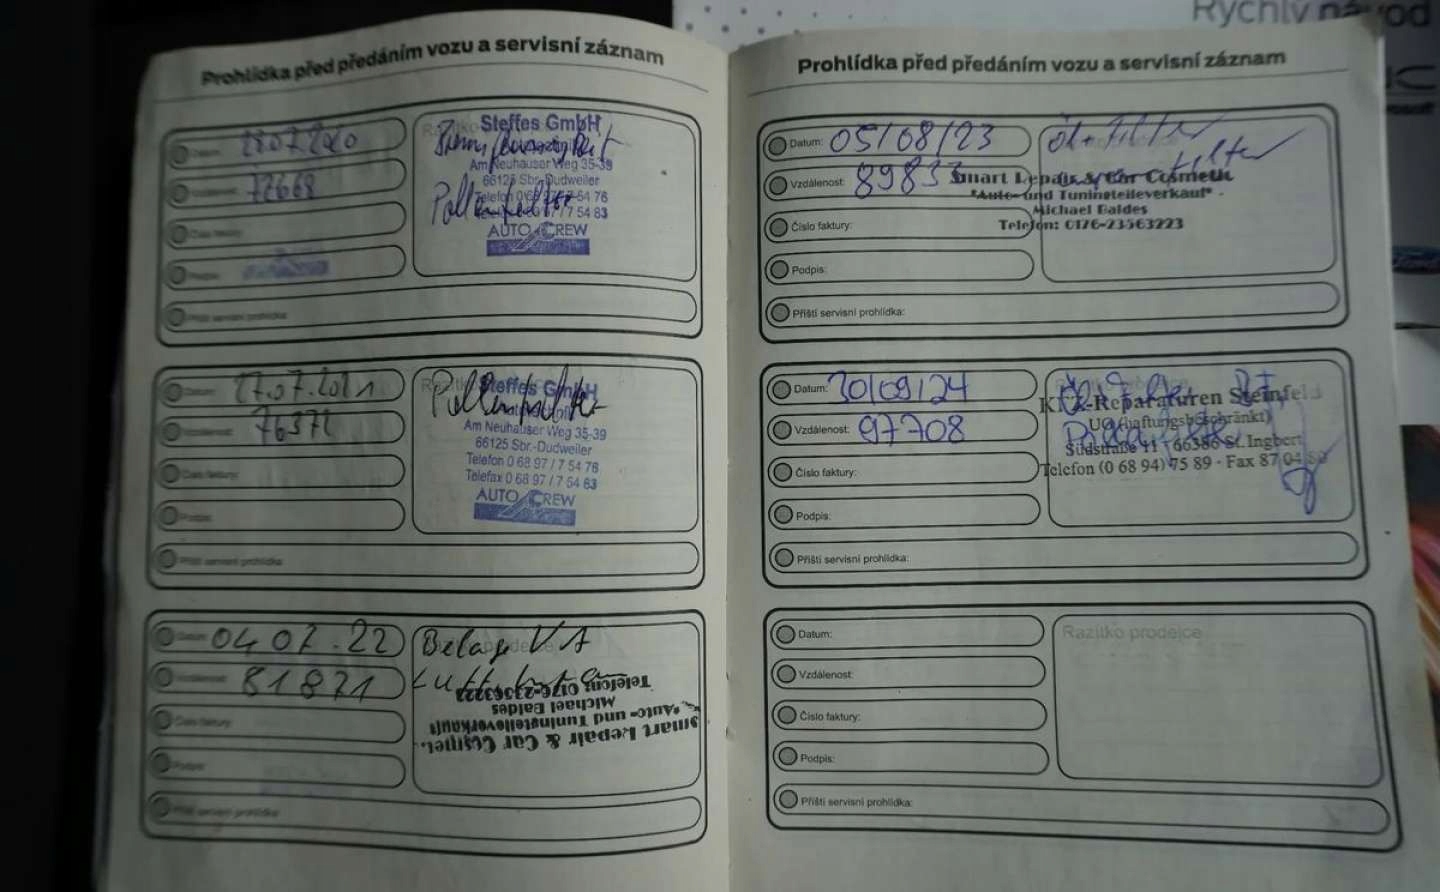 Rychlý návod
Prohlídka před předáním vozu a servisní záznam
Datum: 28.07.2020
Vzdálenost: 72668
Číslo faktury:
Podpis:
Příští servisní prohlídka:
Steffes GmbH
Am Neuhauser Weg 35-39
66125 Sbr.-Dudweiler
Telefon 0 68 97 / 7 54 76
Telefax 0 68 97 / 7 54 83
Pollenfilter
AUTO CREW
Datum: 27.07.2021
Vzdálenost: 76372
Číslo faktury:
Podpis:
Příští servisní prohlídka:
Pollenfilter
Steffes GmbH
Am Neuhauser Weg 35-39
66125 Sbr.-Dudweiler
Telefon 0 68 97 / 7 54 76
Telefax 0 68 97 / 7 54 83
AUTO CREW
Datum: 04 07.22
Vzdálenost: 81871
Číslo faktury:
Podpis:
Příští servisní prohlídka:
Beläge VA
Smart Repair & Car Cosmet.
"Auto- und Tuningteileverkauf"
Michael Baldes
Telefon: 0176-23563223
Prohlídka před předáním vozu a servisní záznam
Datum: 05/08/23
Vzdálenost: 89833
Číslo faktury:
Podpis:
Příští servisní prohlídka:
Öl+Filter
Filter
Smart Repair & Car Cosmetic
"Auto- und Tuningteileverkauf"
Michael Baldes
Telefon: 0176-23563223
Datum: 30/09/24
Vzdálenost: 97708
Číslo faktury:
Podpis:
Příští servisní prohlídka:
KFZ-Reparaturen Steinfeld
UG (haftungsbeschränkt)
Südstraße 11 · 66386 St. Ingbert
Telefon (0 68 94) 75 89 · Fax 87 04 80
Datum:
Vzdálenost:
Číslo faktury:
Podpis:
Příští servisní prohlídka:
Razítko prodejce